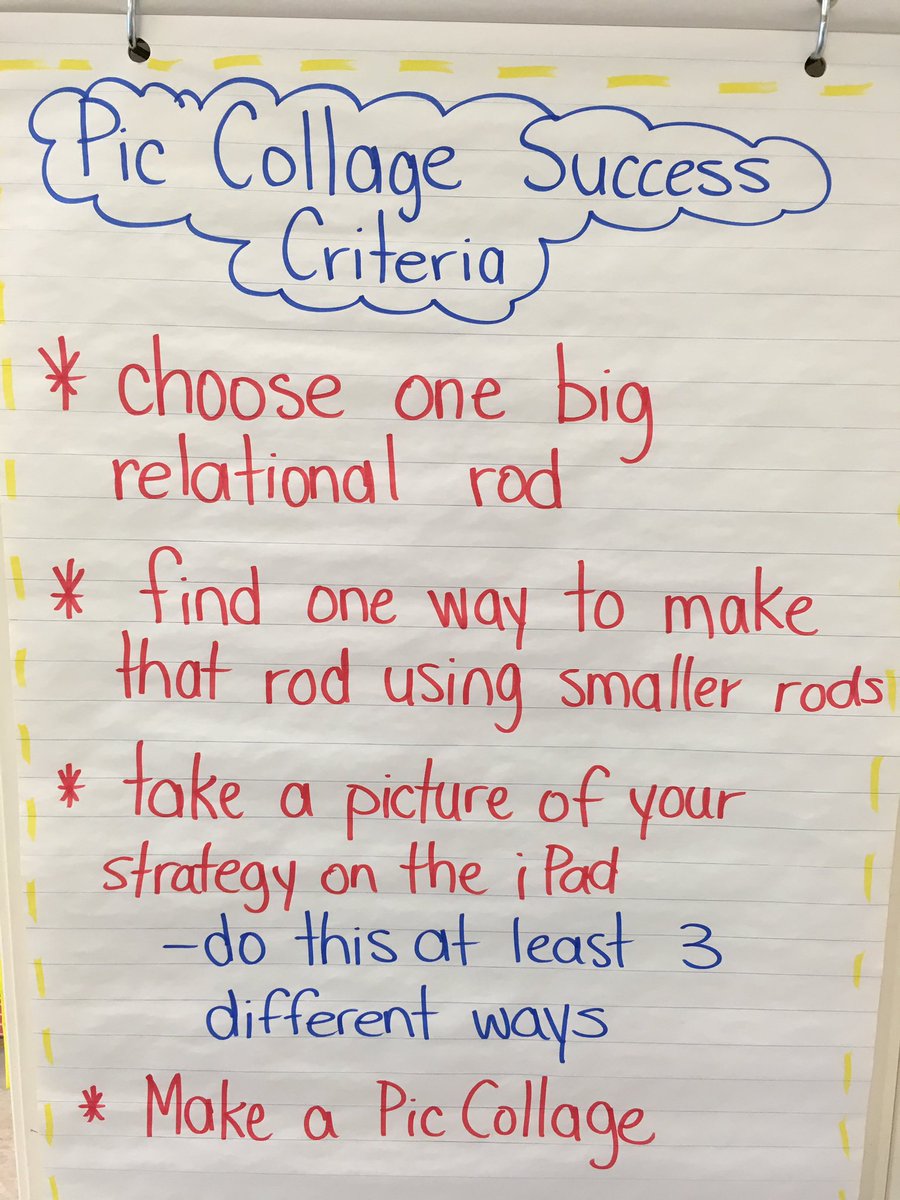 Pic Collage Success
Criteria
* choose one big
relational rod
* find one way to make
that rod using smaller rods
* take a picture of your
strategy on the iPad
- do this at least 3
different ways
* Make a Pic Collage